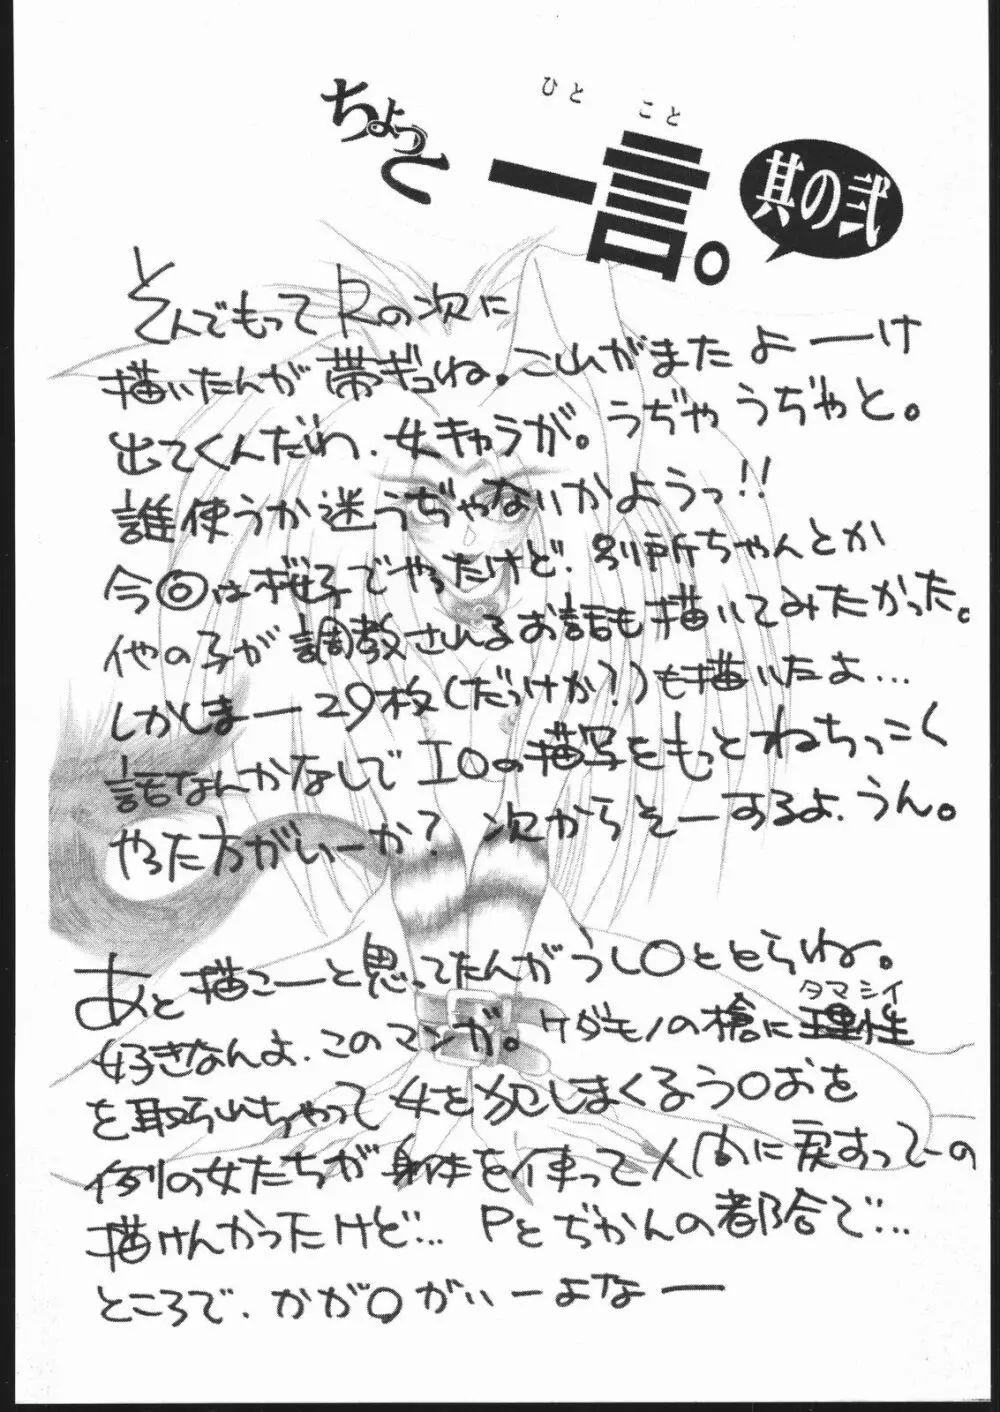 ちょっと
ひとこと
一言。
其の弐
とんでもって Rの次に
描いたんが 帯ギュね。こいがまた よーーけ
出てくんだわ、女キャラが。うぢゃ うぢゃと。
誰使うか迷うぢゃないかようっ!!
今◎は桜子でやったけど、別所ちゃんとか
他の子が調教されるお話も描いてみたかった。
しかしまー 29枚(だっけか?)も描いたよ…
話なんかなしで エロの描写をもっとねちっこく
やった方がいーか? 次からそーするよ、うん。
あと描こーと思ってたんがうし○ととらね。
好きなんよ、このマンガ。ケダモノの槍に理性
タマシイ
を取らいちゃって 女を犯しまくるう○おを
例の女たちが身体を使って人間に戻すってーの
描けんかったけど… Pとぢかんの都合で…
ところで、かが○がいーよなー